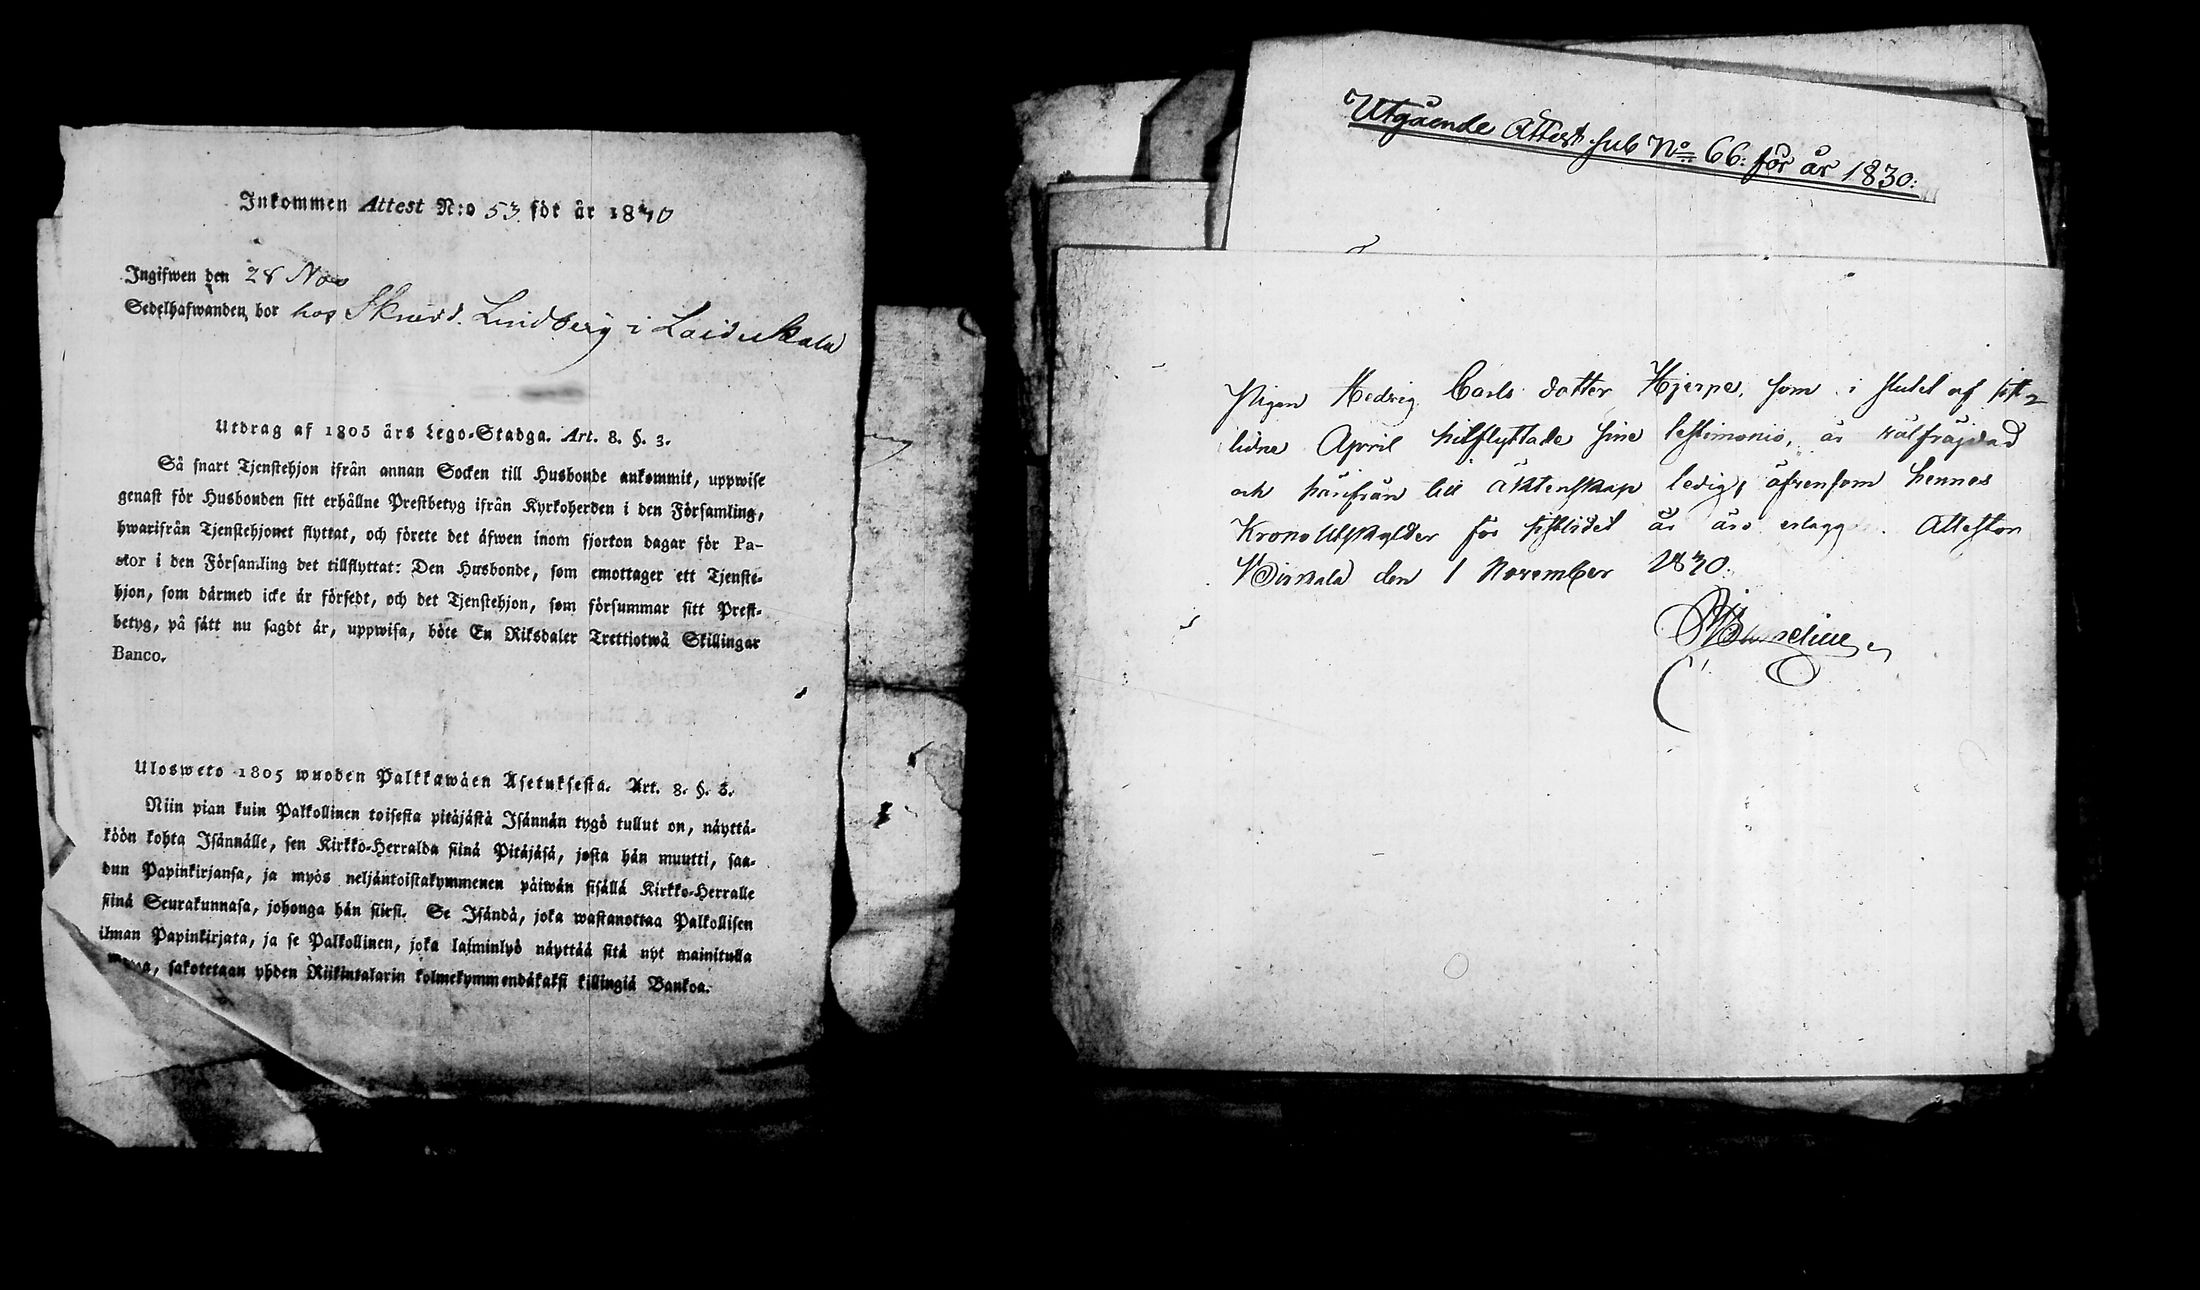 Inkommen Attest N:o 53 för år 1830
Ingifwen den 28 Nov
Sedelhafwanden bor hos Skrädd. Lindberg i Laiduskala
Utdrag af 1805 års Lego-Stadga. Art. 8. §. 3.
Så snart Tjenstehjon ifrån annan Socken till Husbonde ankommit, uppwise
genast för Husbonden sitt erhållne Prestbetyg ifrån Kyrkoherden i den Församling,
hwarifrån Tjenstehjonet flyttat, och förete det äfwen inom fjorton dagar för Pa-
stor i den Församling det tillflyttat: Den Husbonde, som emottager ett Tjenste-
hjon, som därmed icke är försedt, och det Tjenstehjon, som försummar sitt Prest-
betyg, på sätt nu sagdt är, uppwisa, böte En Riksdaler Trettiotwå Skillingar
Banco.
Ulosweto 1805 wuoden Palkkawäen Asetuksesta. Art. 8. §. 3.
Niin pian kuin Palkollinen toisesta pitäjästä Isännän tygö tullut on, näyttä-
köön kohta Isännälle, sen Kirkko-Herralda siinä Pitäjäsä, josta hän muutti, saa-
dun Papinkirjansa, ja myös neljäntoistakymmenen päiwän sisällä Kirkko-Herralle
siinä Seurakunnasa, johonga hän siirsi. Se Isändä, joka wastanottaa Palkollisen
ilman Papinkirjata, ja se Palkollinen, joka laiminlyö näyttää sitä nyt mainitulla
sakotetaan yhden Riikintalarin kolmekymmendäkaksi killingiä Bankoa.
Utgående Attest sub No 66: för år 1830:
Pigan Hedvig Carls dotter Hjerpe, som i slutet af sist-
lidne April hitflyttade sine testimonio, är välfräjdad
och härifrån till äktenskap ledig, äfvensom hennes
Krono Utskylder för sistlidet år äro erlagg. Attestor
Virmala den 1 November 1830.